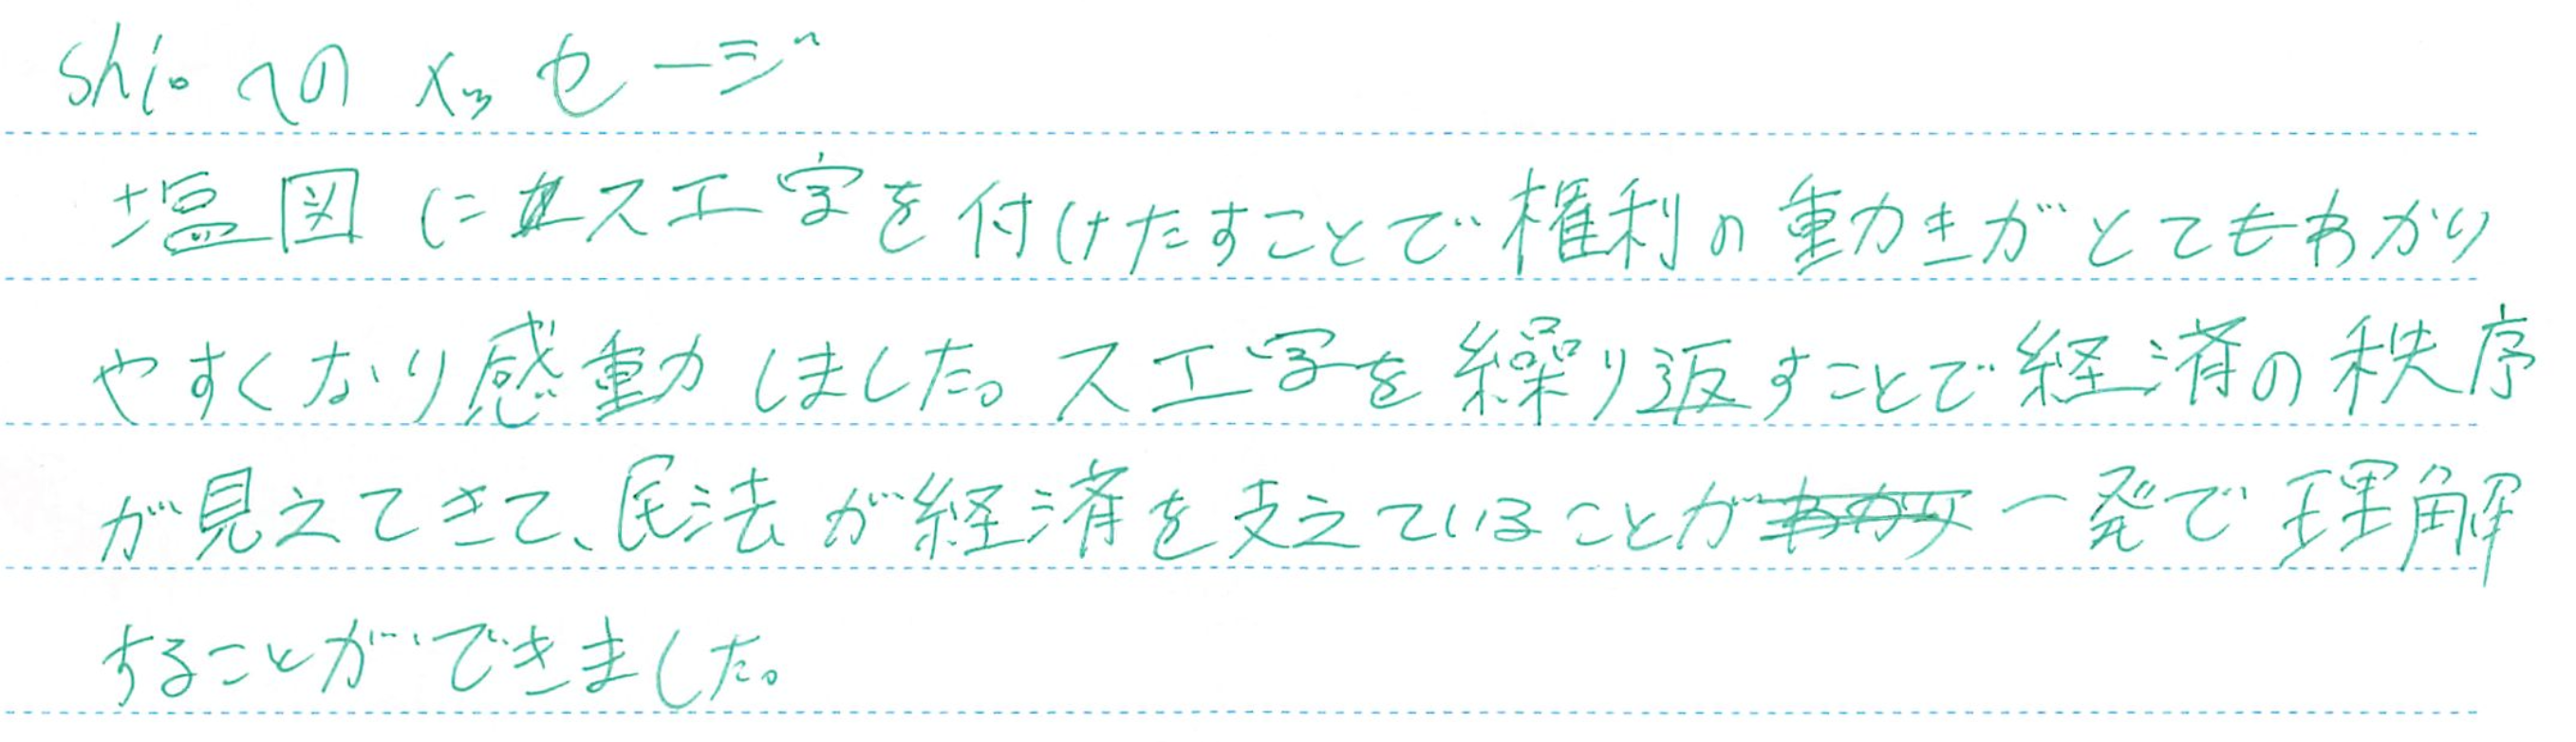 shioへのメッセージ
塩図にスエ字を付けたすことで権利の動きがとてもわかり
やすくなり感動しました。スエ字を繰り返すことで経済の秩序
が見えてきて、民法が経済を支えていることが一発で理解
することができました。